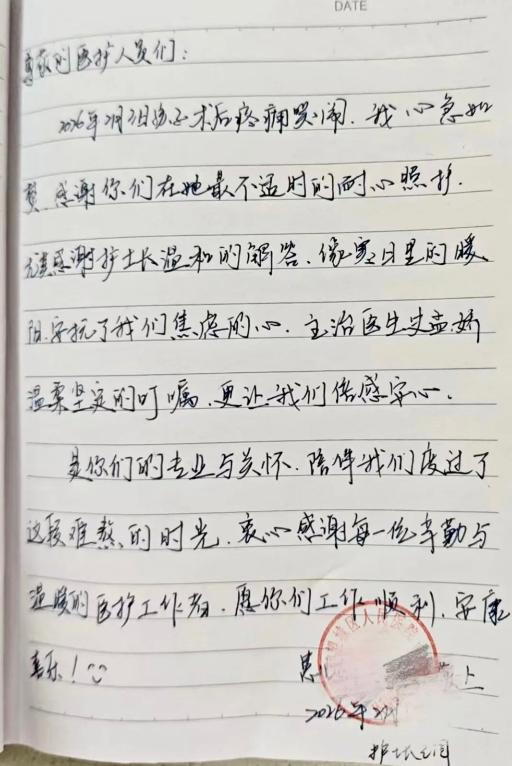 DATE
尊敬的医护人员们：
2026年2月2日孩子术后疼痛哭闹，我心急如
焚，感谢你们在她最不适时的耐心照护.
尤其感谢护士长温和的解答、像冬日里的暖
阳.安抚了我们焦虑的心.主治医生史孟娇
温柔坚定的叮嘱、更让我们倍感安心.
是你们的专业与关怀.陪伴我们度过了
这段难熬的时光.衷心感谢每一位辛勤与
温暖的医护工作者.愿你们工作顺利,安康
喜乐！
患儿 上
2026年2月
护士长
区人民医院